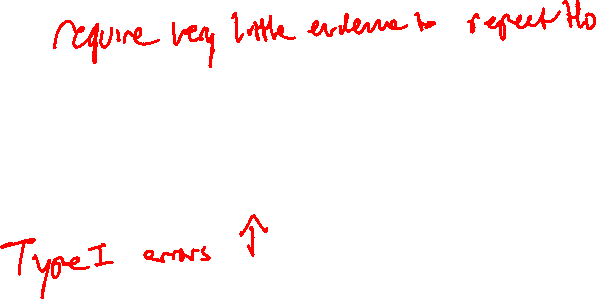 require very little evidence to reject Ho
Type I errors ↑